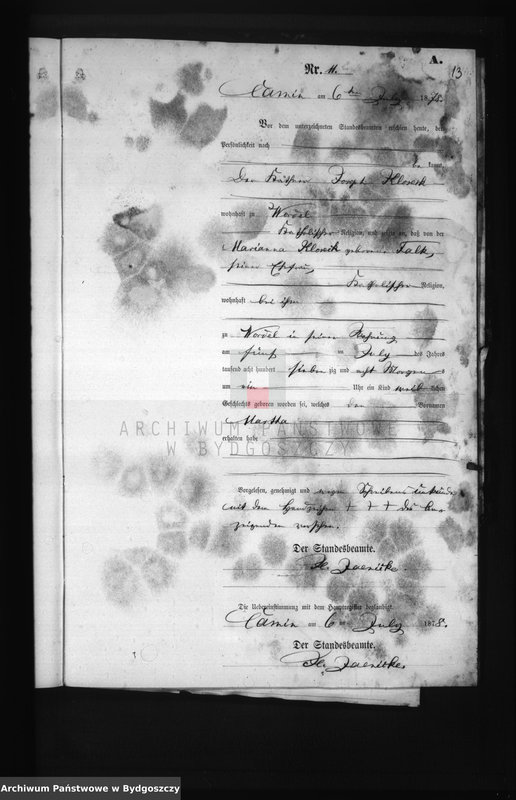 A.
13
Nr. 11.
Camin am 6ten July 1878.
Vor dem unterzeichneten Standesbeamten erschien heute, der
Persönlichkeit nach
be kannt,
Der Käthner Joseph
wohnhaft zu
Katholischer Religion, und zeigte an, daß von der
Marianna geborene Falk,
seiner Ehefrau
Katholischer Religion,
wohnhaft bei ihm
zu in seiner Wohnung
am fünf ten July des Jahres
tausend acht hundert sieben zig und acht Morgens
um ein Uhr ein Kind weib lichen
Geschlechts geboren worden sei, welches den Vornamen
Martha
erhalten habe
ARCHIWUM PAŃSTWOWE
W BYDGOSZCZY
Vorgelesen, genehmigt und wegen Schreibens unkunde
mit dem Handzeichen + + + des An-
zeigenden versehen.
Der Standesbeamte.
Die Uebereinstimmung mit dem Hauptregister beglaubigt
Camin am 6ten July 1878.
Der Standesbeamte.
Archiwum Państwowe w Bydgoszczy